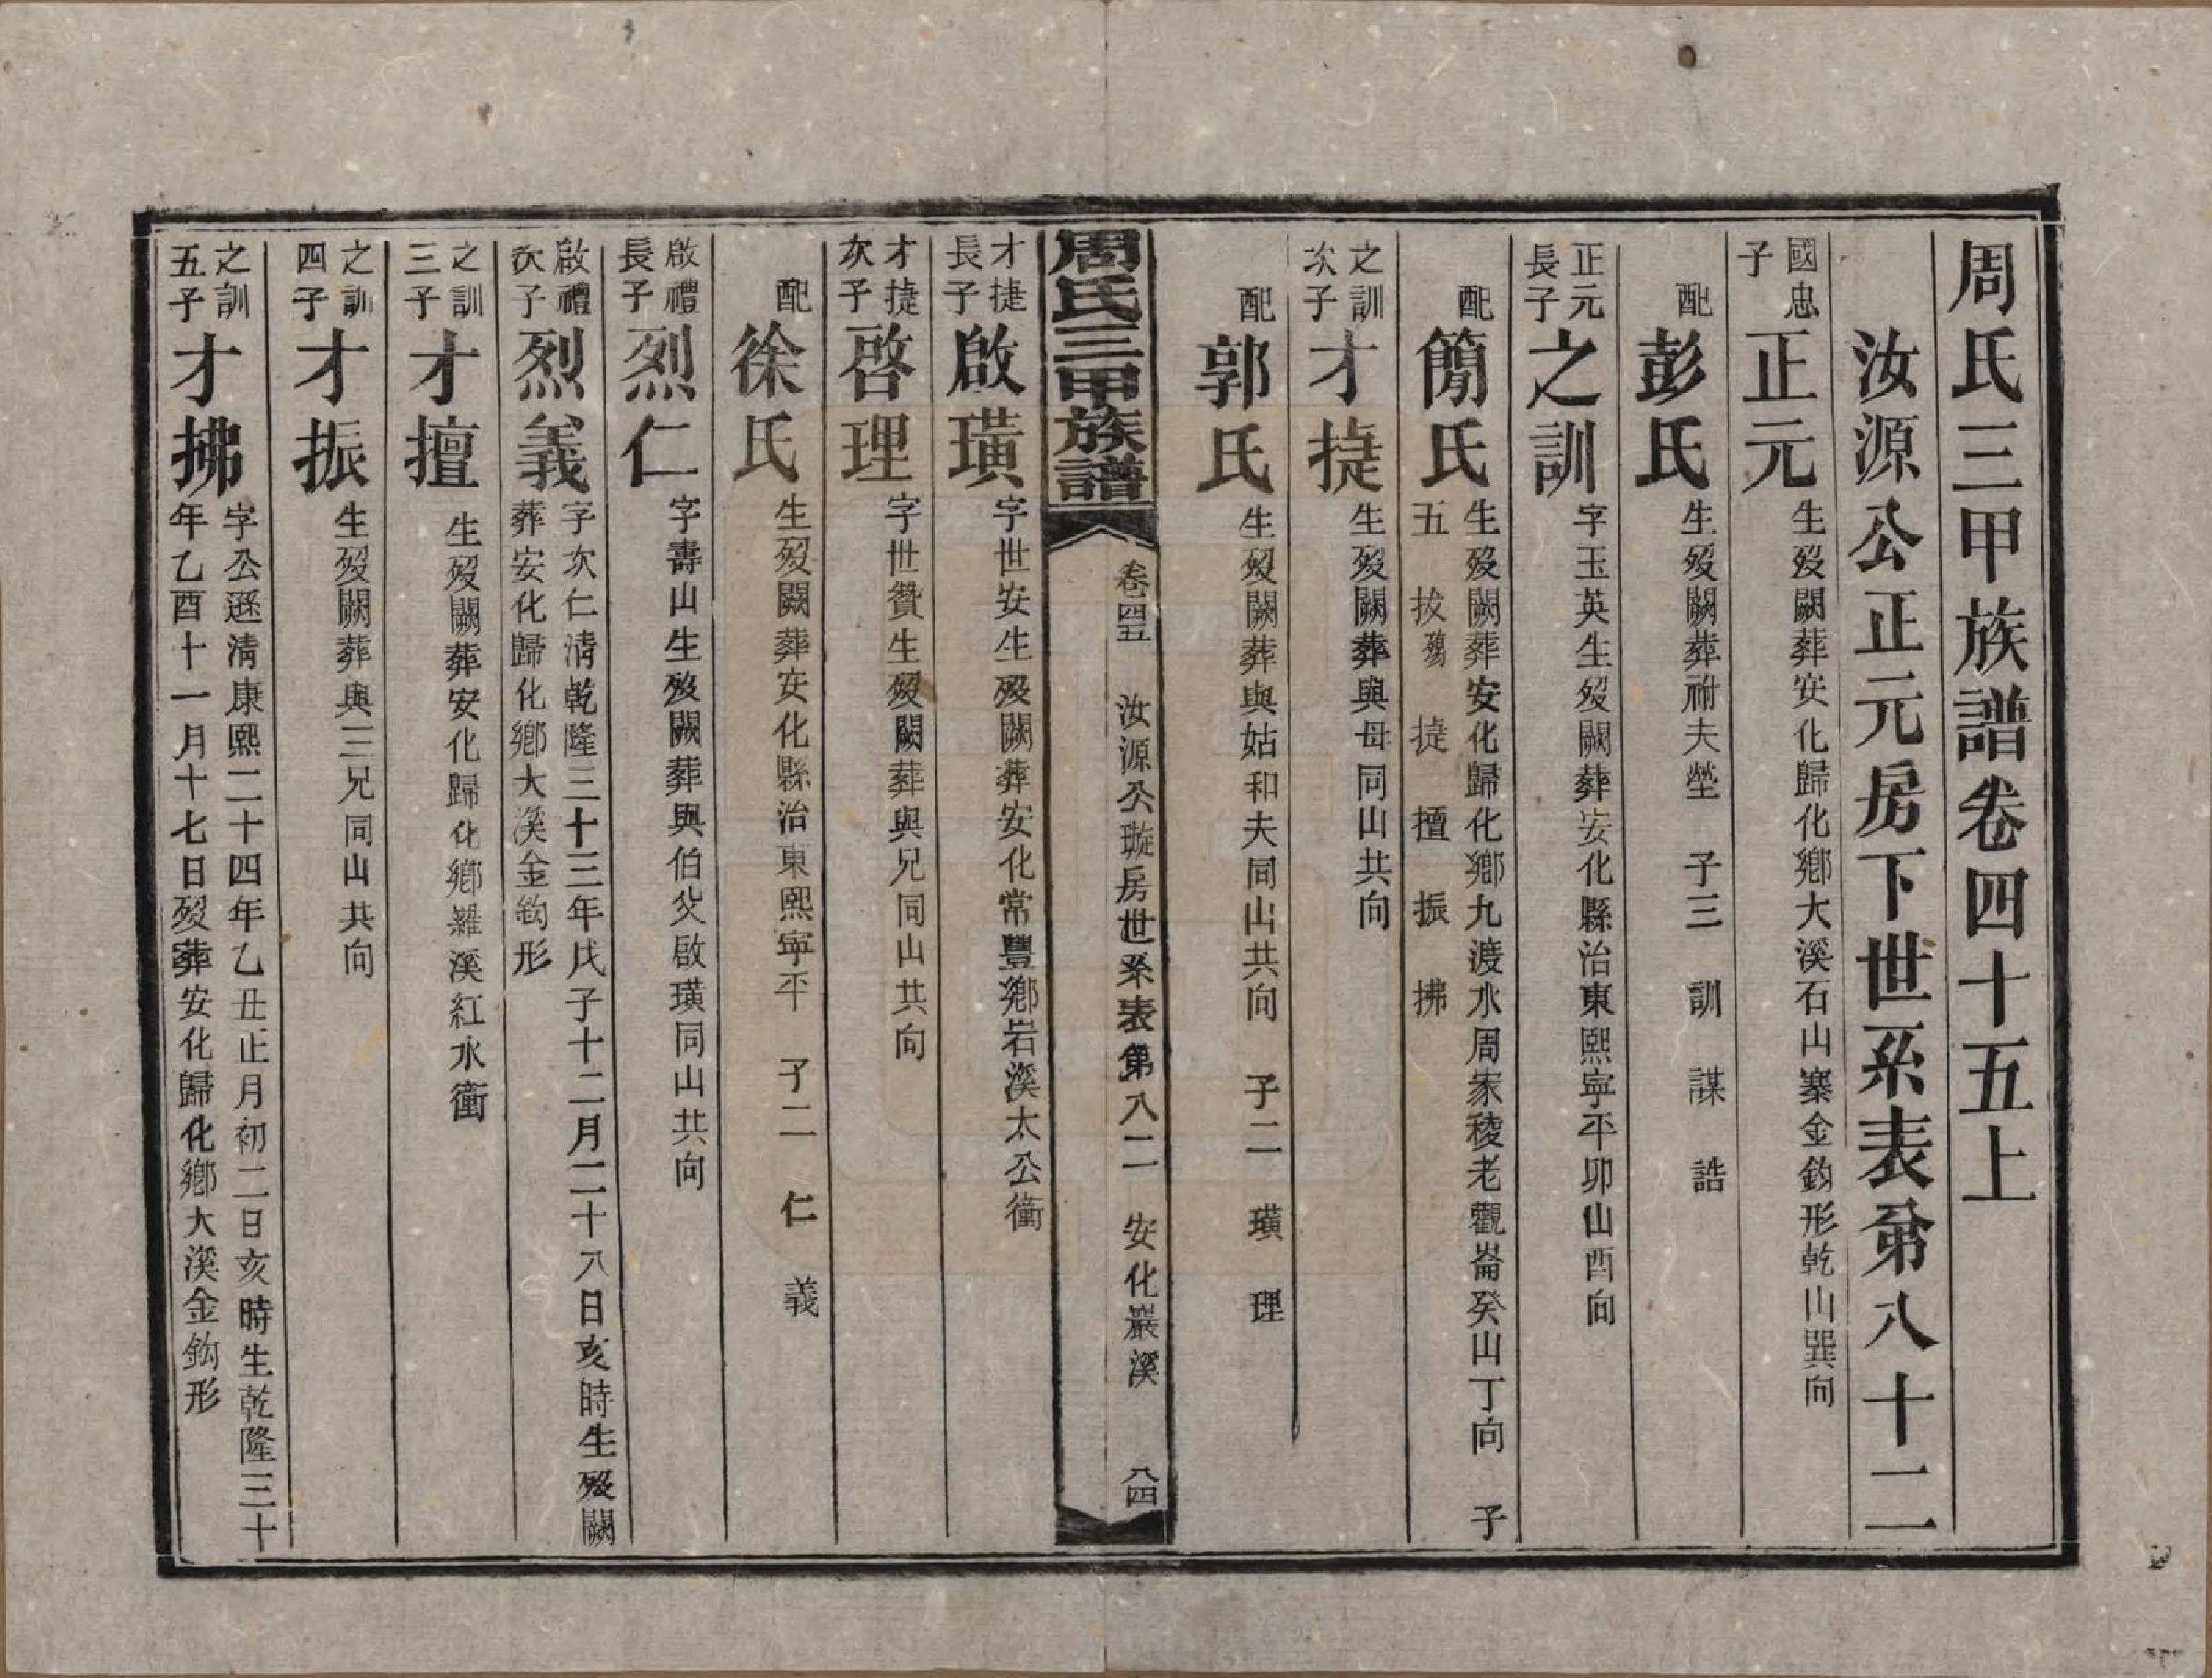 周氏三甲族譜卷四十五上
汝源公正元房下世系表第八十二
國忠子 正元 生歿闕葬安化歸化鄉大溪石山寨金鈎形乾山巽向
配 彭氏 生歿闕葬祔夫塋 子三 訓 謀 誥
正元長子 之訓 字玉英生歿闕葬安化縣治東熙寧平卯山酉向
配 簡氏 生歿闕葬安化歸化鄉九渡水周家稜老觀崙癸山丁向 子
五 拔殤 捷 擅 振 拂
之訓次子 才捷 生歿闕葬與母同山共向
配 郭氏 生歿闕葬與姑和夫同山共向 子二 璜 理
周氏三甲族譜 卷四五 汝源公璇房世系表第八二 安化巖溪 八四
才捷長子 啟璜 字世安生歿闕葬安化常豐鄉岩溪太公衝
才捷次子 啓理 字世贊生歿闕葬與兄同山共向
配 徐氏 生歿闕葬安化縣治東熙寧平 子二 仁 義
啟禮長子 烈仁 字壽山生歿闕葬與伯父啟璜同山共向
啟禮次子 烈義 字次仁清乾隆三十三年戊子十二月二十八日亥時生歿闕
葬安化歸化鄉大溪金鈎形
之訓三子 才擅 生歿闕葬安化歸化鄉雞溪紅水衝
之訓四子 才振 生歿闕葬與三兄同山共向
之訓五子 才拂 字公遜清康熙二十四年乙丑正月初二日亥時生乾隆三十
年乙酉十一月十七日歿葬安化歸化鄉大溪金鈎形